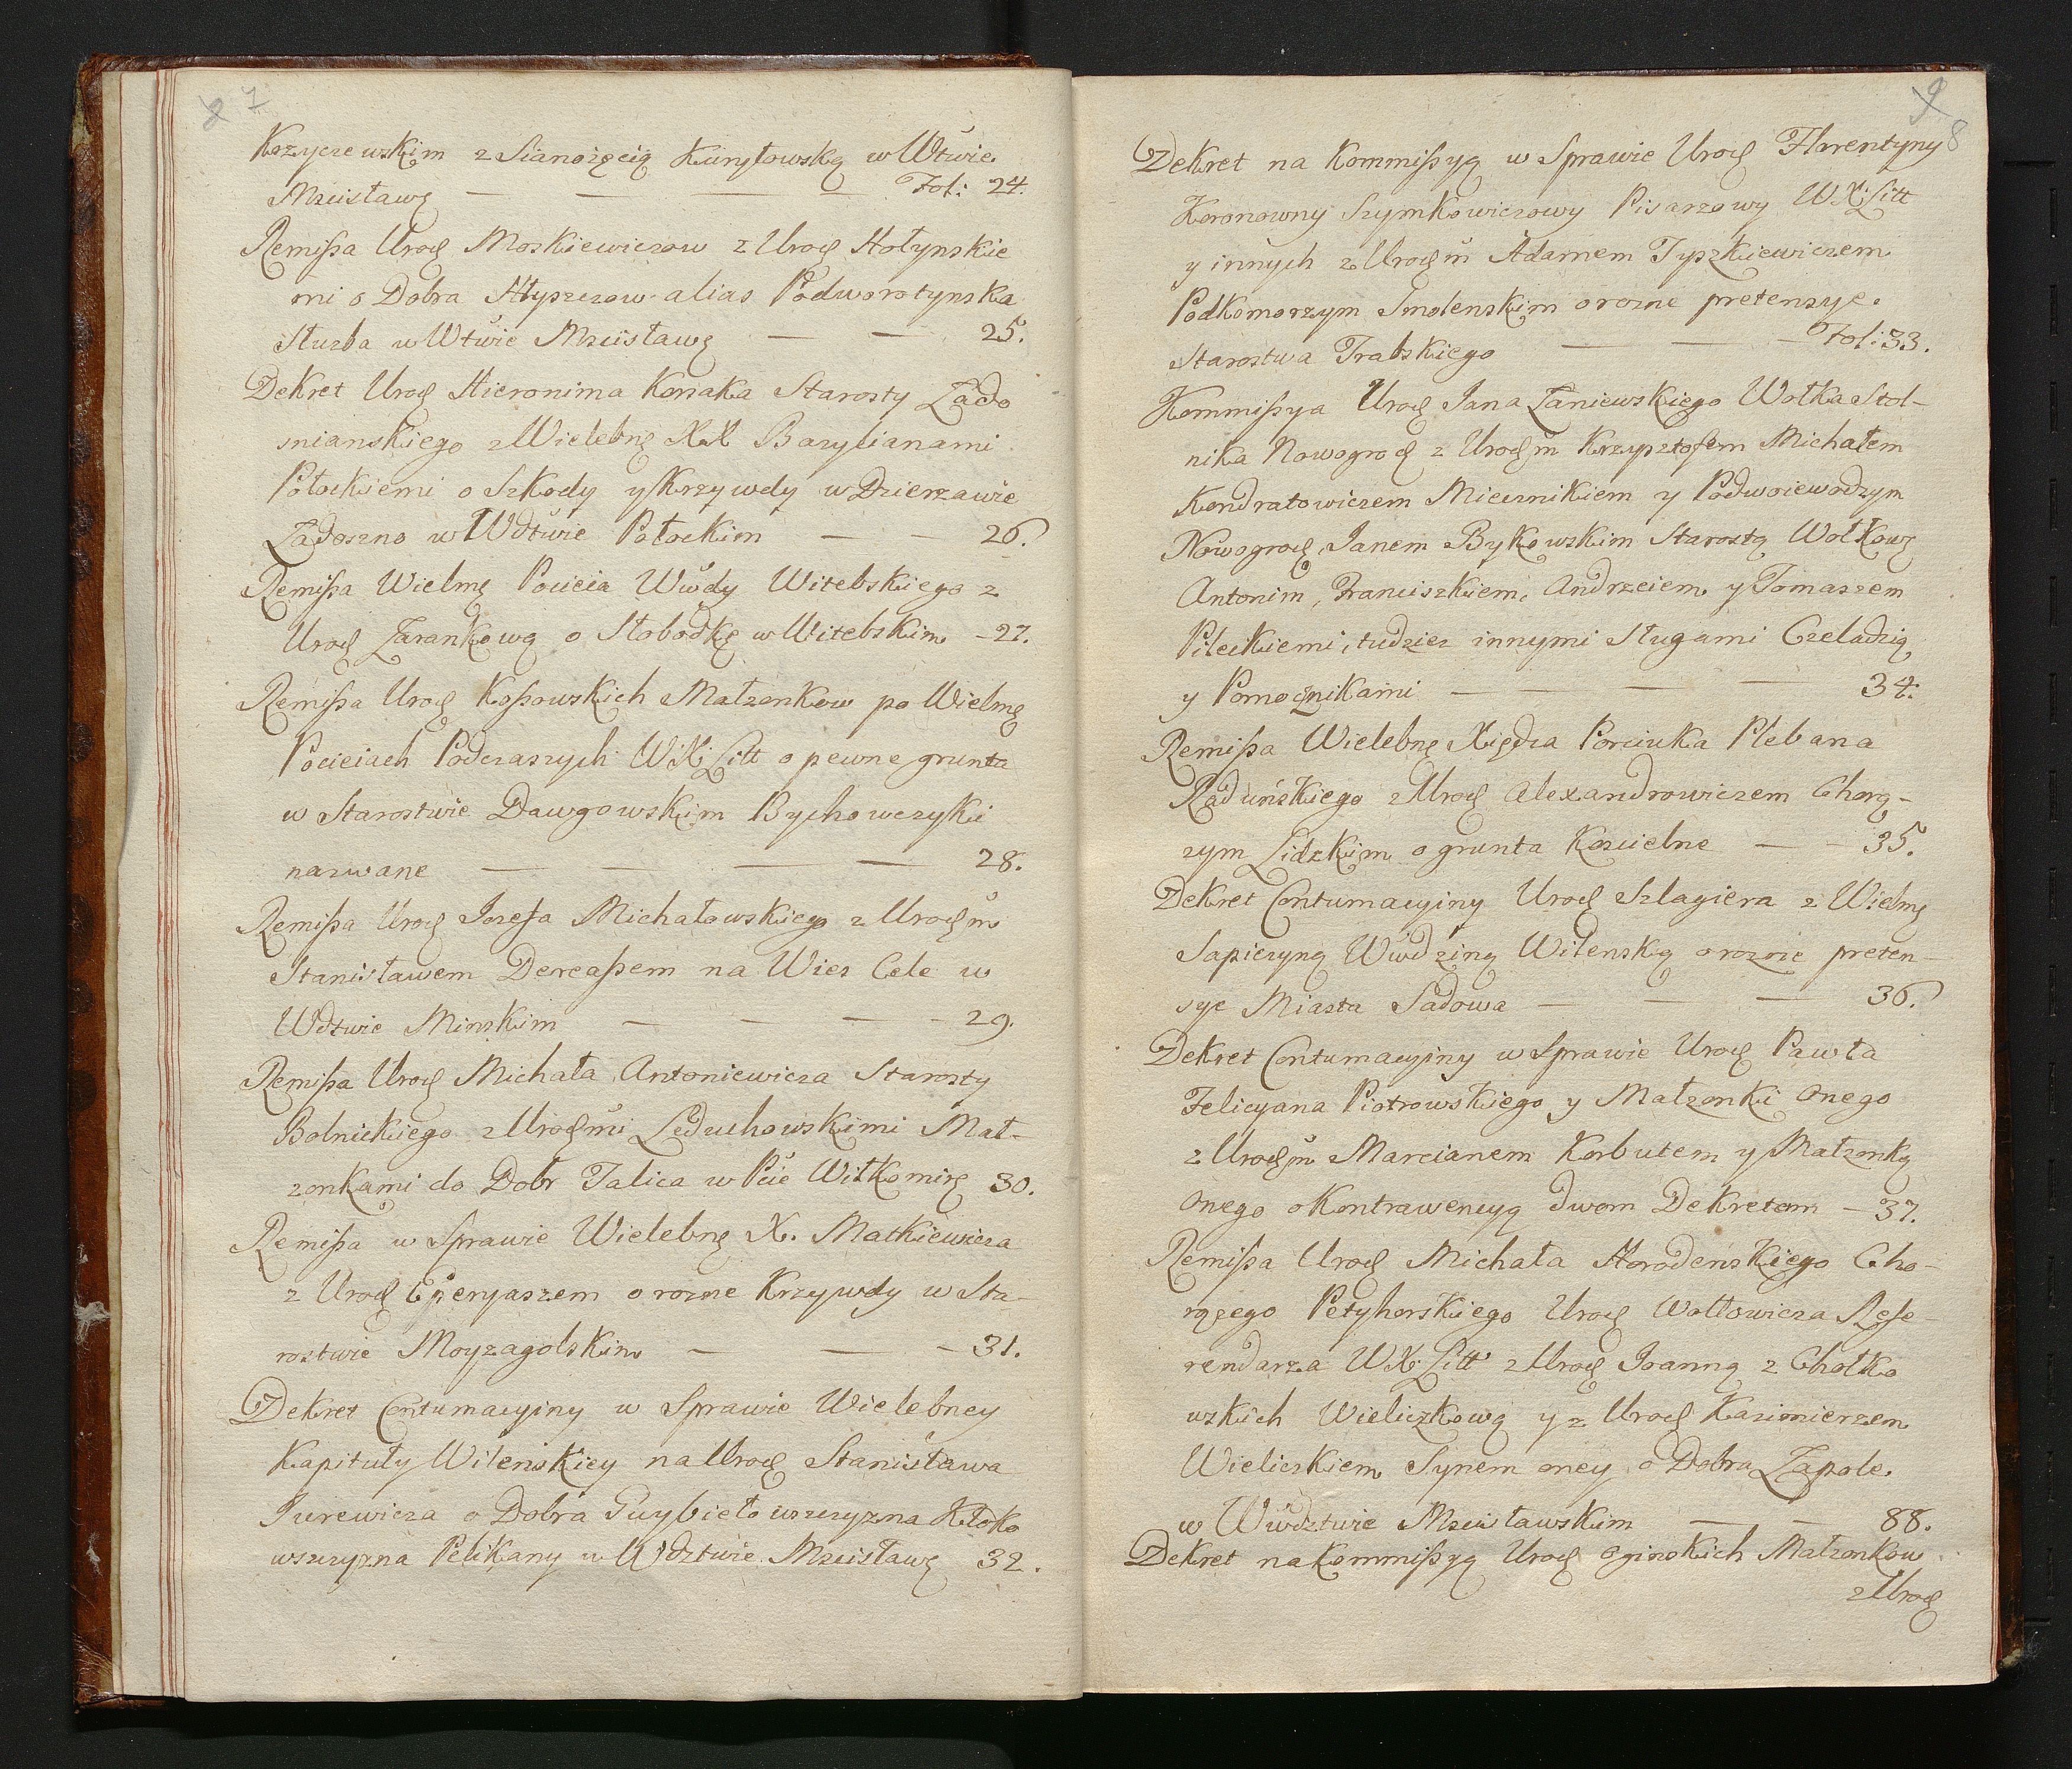 7
Kozyczewskim z Sianożęcią Kuryłowską w Wtwie
Mscisławę — — — — Fol: 24.
Remißa Urod Moskiewiczow z Urod Hołynskie
mi o Dobra Hłyszczow alias Podworotynska
Służba w Wtwie Mscisławę — — 25.
Dekret Urod Hieronima Korsaka Starosty Zado
snianskiego z Wielebnę XX Bazylianami
Połockiemi o Szkody y Krzywdy w Dzierzawie
Zadoszno w Wdtwie Połockim — — 26.
Remißa Wielmę Pocieia Wwdy Witebskiego z
Urod Zarankową o Słobodkę w Witebskim - 27.
Remißa Urod Koßowskich Małzonkow po Wielmę
Pocieiach Podczaszych WXLitt o pewne grunta
w Starostwie Dawgowskim Bychowczyki
nazwane — — — — 28.
Remißa Urod Jozefa Michałowskiego z Urodzm
Stanisławem Dereaßem na Wies Cele w
Wdtwie Minskim — — — 29.
Remißa Urod Michała Antoniewicza Starosty
Bolnickiego z Urodzmi Leduchowskimi Mał-
zonkami do Dobr Talica w Pcie Wiłkomirę 30.
Remißa w Sprawie Wielebnę X. Matkiewicza
z Urod Eperyaszem o rozne Krzywdy w Sta-
rostwie Moyzagolskim — — - 31.
Dekret Contumacyiny w Sprawie Wielebney
Kapituły Wilenskiey na Urod Stanisława
Jurewicza o Dobra Puybieło wszczyzna Kłoko
wszczyzna Pelikany w Wdztwie Mscisławę 32.
9
8
Dekret na Kommißyą w Sprawie Urod Florentyny
Koronowny Szymkowiczowy Pisarzowy WXLitt
y innych z Urodzm Adamem Tyszkiewiczem
Podkomorzym Smolenskim o rozne pretensye
Starostwa Trabskiego — — - Fol: 33.
Kommißya Urod Jana Zaniewskiego Wołka Stol-
nika Nowogrod z Urodzm Krzysztofem Michałem
Kondratowiczem Miecznikiem y Podwoiewodzym
Nowogrod, Janem Bykowskim Starostą Wołkowę
Antonim, Franciszkiem, Andrzeiem y Tomaszem
Pileckiemi, tudziez innymi Sługami Czeladzią
y Pomocznikami — — — — 34.
Remißa Wielebnę Xiędza Porciuka Plebana
Raduńskiego z Urod Alexandrowiczem Chorą-
zym Lidzkim o grunta Koscielne — - 35.
Dekret Contumacyiny Urod Szlagiera z Wielmę
Sapiezyną Wwdziną Wilenską o rozne preten-
sye Miasta Sadowa — — — 36.
Dekret Contumacyiny w Sprawie Urod Pawła
Felicyana Piotrowskiego y Małzonki Onego
z Urodzm Marcianem Korbutem y Małzonką
Onego o Kontrawencyą dwom Dekretom - 37.
Remißa Urod Michała Horodenskiego Cho-
rązego Petyhorskiego Urod Wołłowicza Refe-
rendarza WXLitt z Urod Joanną z Chołko
wskich Wieliczkową y z Urod Kazimierzem
Wieliczkiem Synem oney o Dobra Zapole
w Wwdztwie Mscisławskim — — 88.
Dekret na Kommißyą Urod Oginskich Małzonkow
z Urod